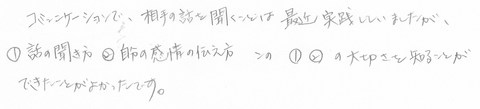 コミュニケーションで、相手の話を聞くことは最近実践していましたが、
①話の聞き方②自分の感情の伝え方 この①②の大切さを知ることが
できたことがよかったです。